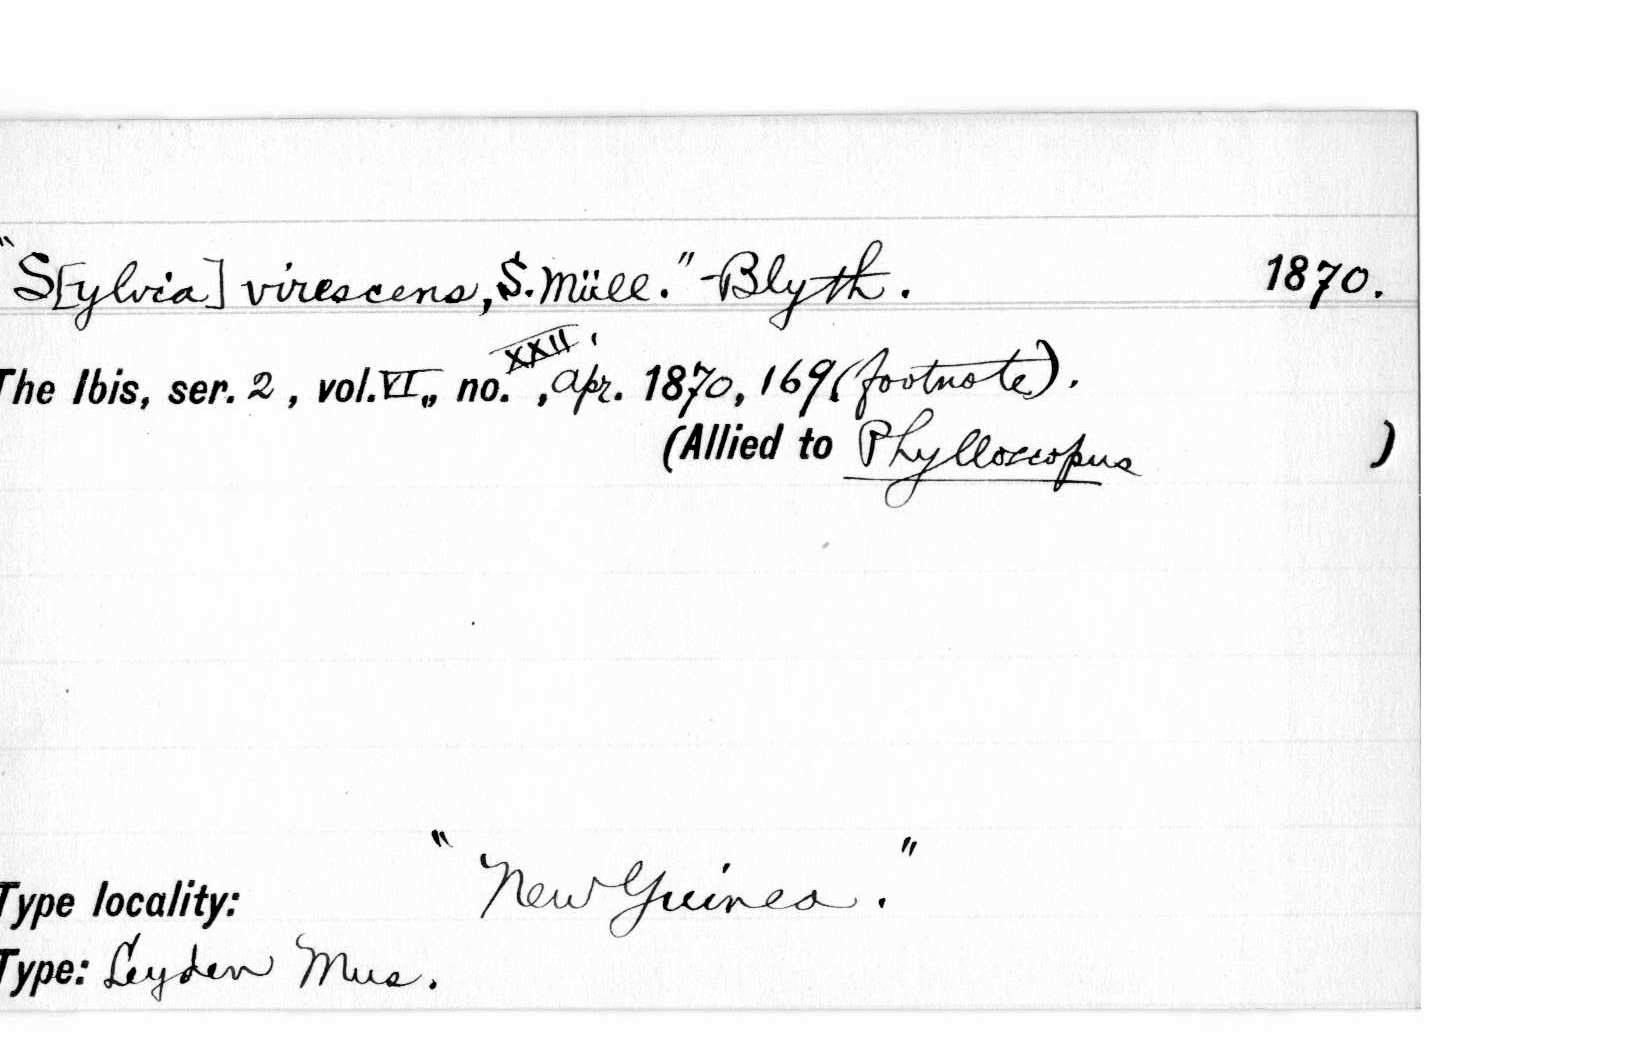 "S[ylvia] virescens, S. Müll." - Blyth. 1870.
The Ibis, ser. 2, vol. VI., no. XXII, Apr. 1870, 169 (footnote).
(Allied to Phylloscopus )
Type locality: "New Guinea."
Type: Leyden Mus.